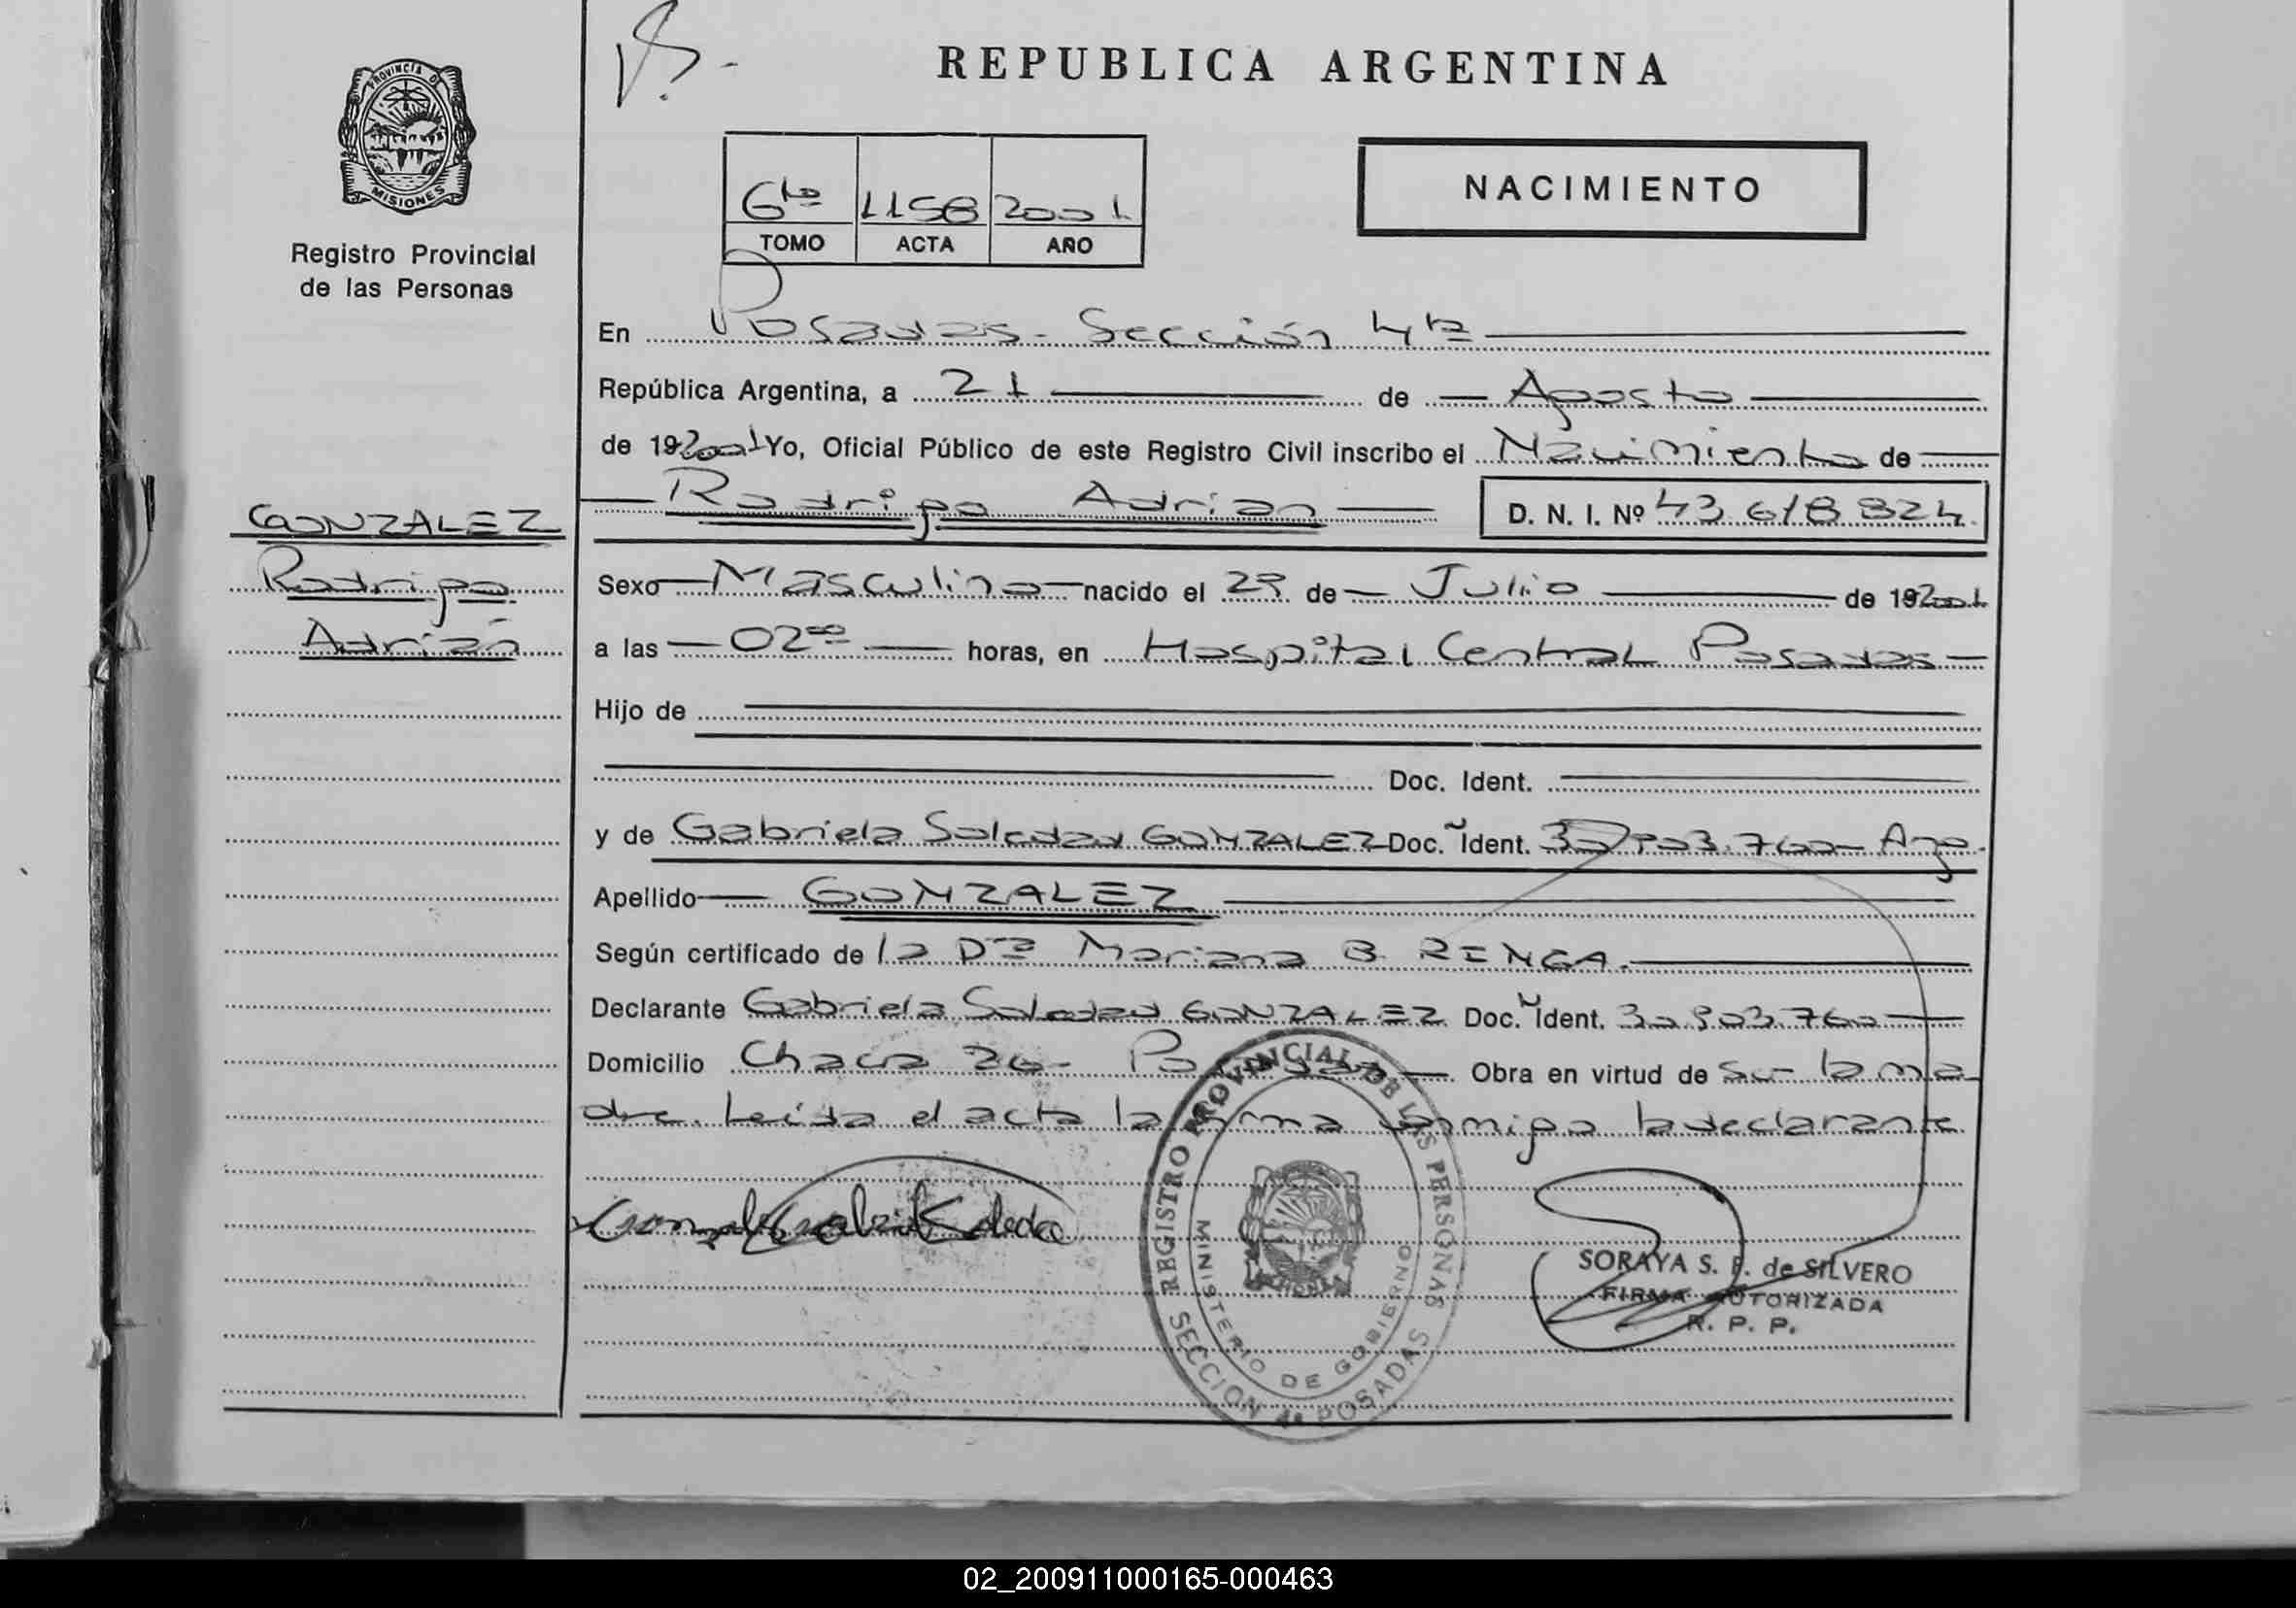 REPUBLICA ARGENTINA
PROVINCIA DE
MISIONES
Registro Provincial
de las Personas
6to 1158 2001
TOMO ACTA AÑO
NACIMIENTO
En Posadas - Sección 4ta
República Argentina, a 21 de Agosto
de 192001 Yo, Oficial Público de este Registro Civil inscribo el Nacimiento de
Rodrigo Adrian D. N. I. Nº 43.618.824
GONZALEZ
Rodrigo
Adrián
Sexo Masculino nacido el 29 de Julio de 192001
a las 02 00 horas, en Hospital Central Posadas
Hijo de
Doc. Ident.
y de Gabriela Soledad GONZALEZ Doc. Ident. 30.903.760 - Arg.
Apellido GONZALEZ
Según certificado de la Dra Mariana B. RENGA.
Declarante Gabriela Soledad GONZALEZ Doc. Ident. 30.903.760
Domicilio Chacra 26 - Posadas Obra en virtud de ser la ma
dre. Leída el acta la firma conmigo la declarante
Gonzalez Gabriela Soledad
REGISTRO PROVINCIAL DE LAS PERSONAS
MINISTERIO DE GOBIERNO
MISIONES
SECCION 4a POSADAS
SORAYA S. F. de SILVERO
FIRMA AUTORIZADA
R. P. P.
02_200911000165-000463